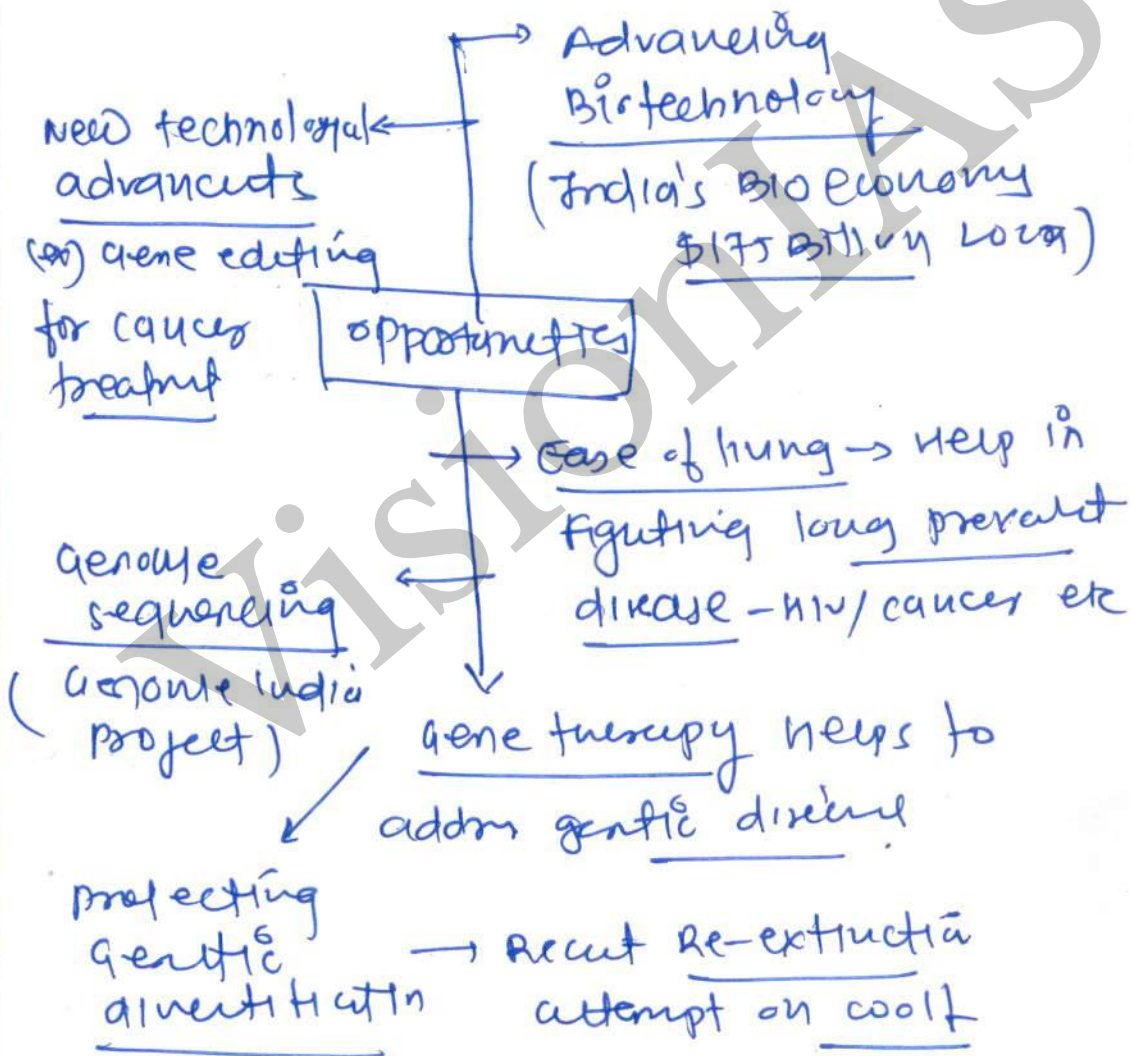 Advancing
Biotechnology
(India's Bio economy
$175 Billion
New technological
advancets
(ex) Gene editing
for cancer
treatmet
opportunities
Ease of living → Help in
Fighting long prevalet
disease - HIV/cancer etc
Genome
sequencing
(Genome India
project)
Gene therapy helps to
address genetic disease.
protecting
Genetic
→ Recent Re-extinction
attempt on woolf
VisionIAS